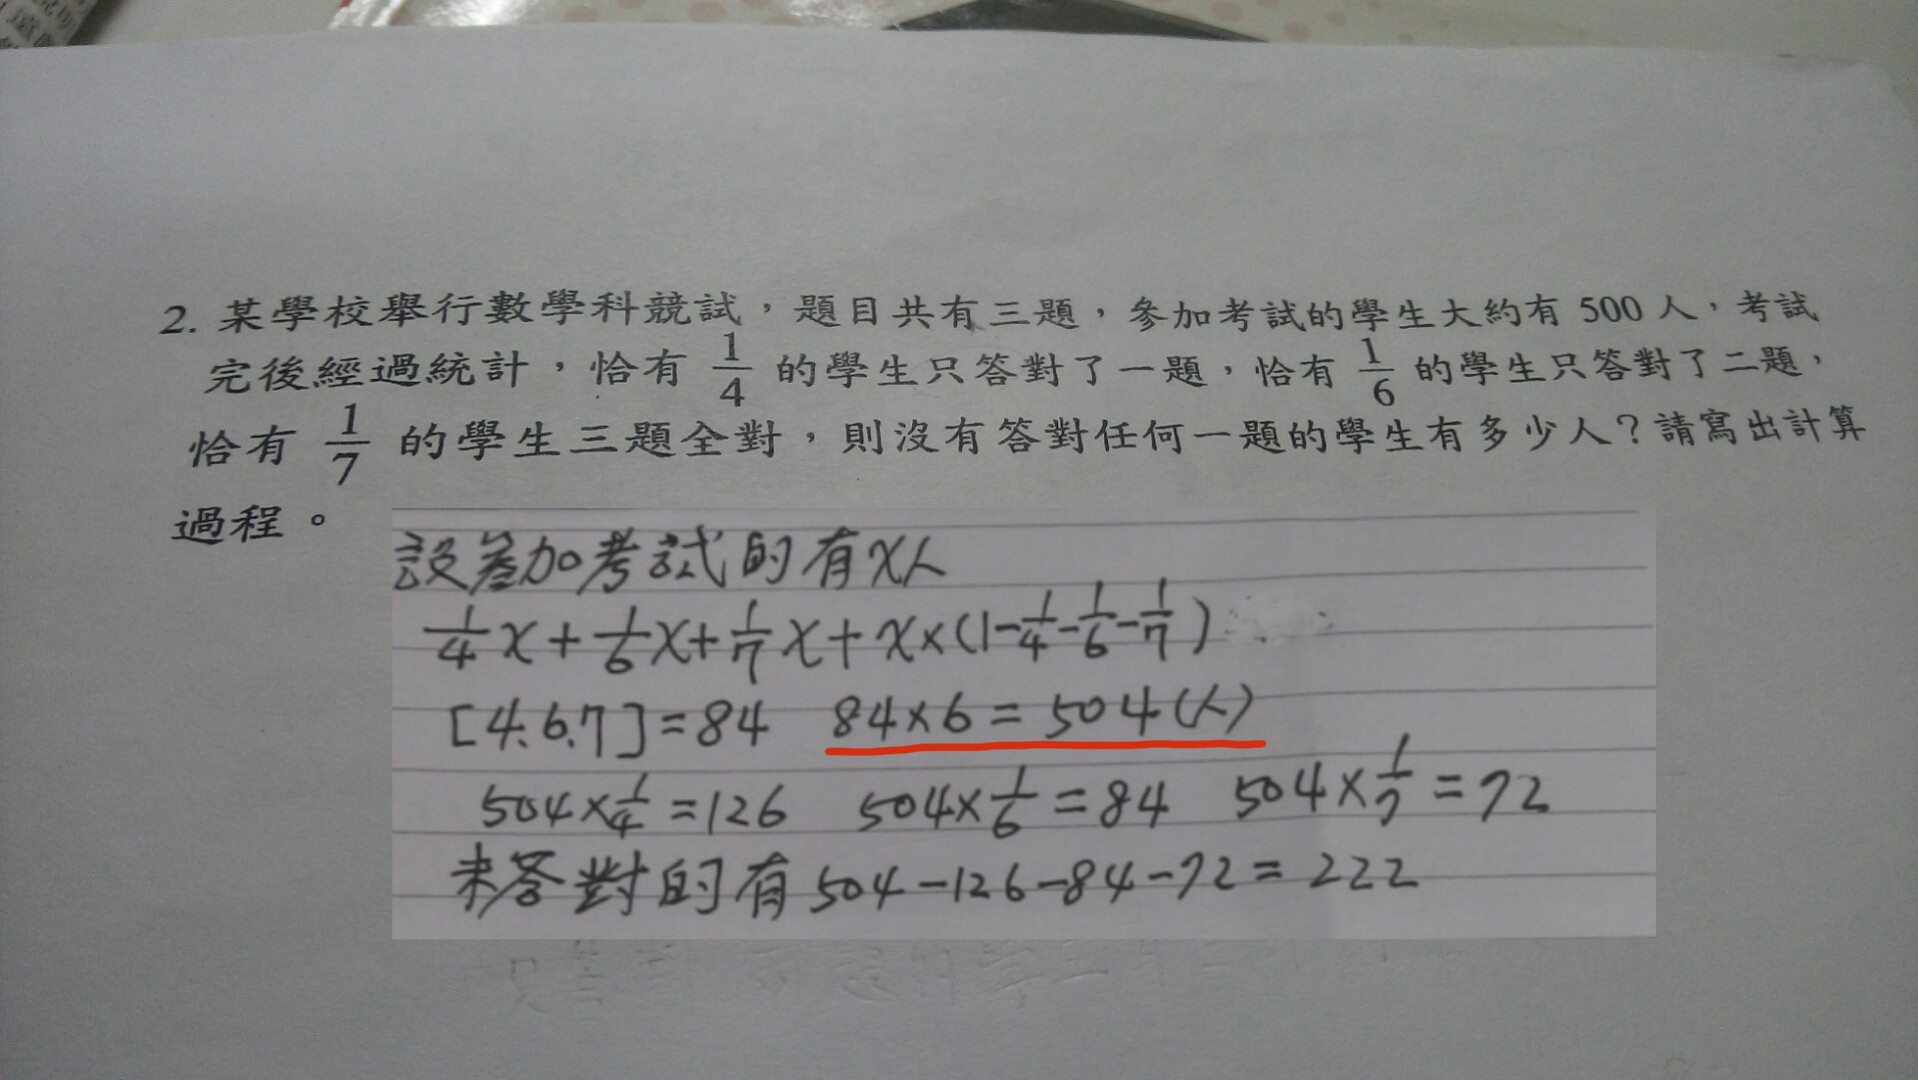 2. 某學校舉行數學科競試，題目共有三題，參加考試的學生大約有 500 人，考試
完後經過統計，恰有 1/4 的學生只答對了一題，恰有 1/6 的學生只答對了二題，
恰有 1/7 的學生三題全對，則沒有答對任何一題的學生有多少人？請寫出計算
過程。
設參加考試的有x人
1/4 x + 1/6 x + 1/7 x + x×(1-1/4-1/6-1/7)
[4.6.7]=84 84×6=504(人)
504×1/4=126 504×1/6=84 504×1/7=72
未答對的有504-126-84-72=222